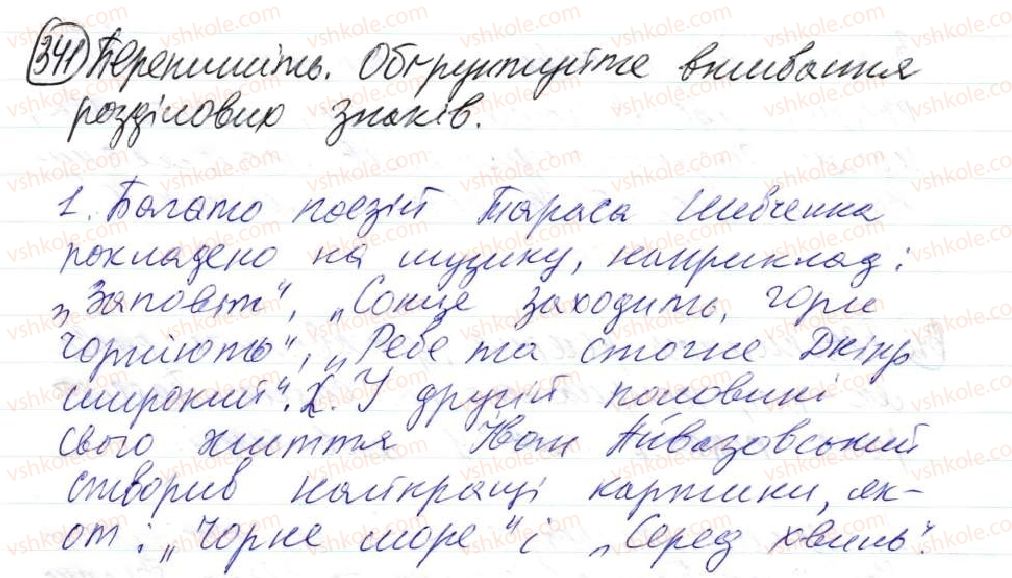 341 Перепишіть. Обґрунтуйте вживання
розділових знаків.
1. Багато поезій Тараса Шевченка
покладено на музику, наприклад:
„Заповіт“, „Сонце заходить, гори
чорніють“, „Реве та стогне Дніпр
широкий“. 2. У другій половині
свого життя Іван Айвазовський
створив найкращі картини, як-
от: „Чорне море“ і „Серед хвиль“.